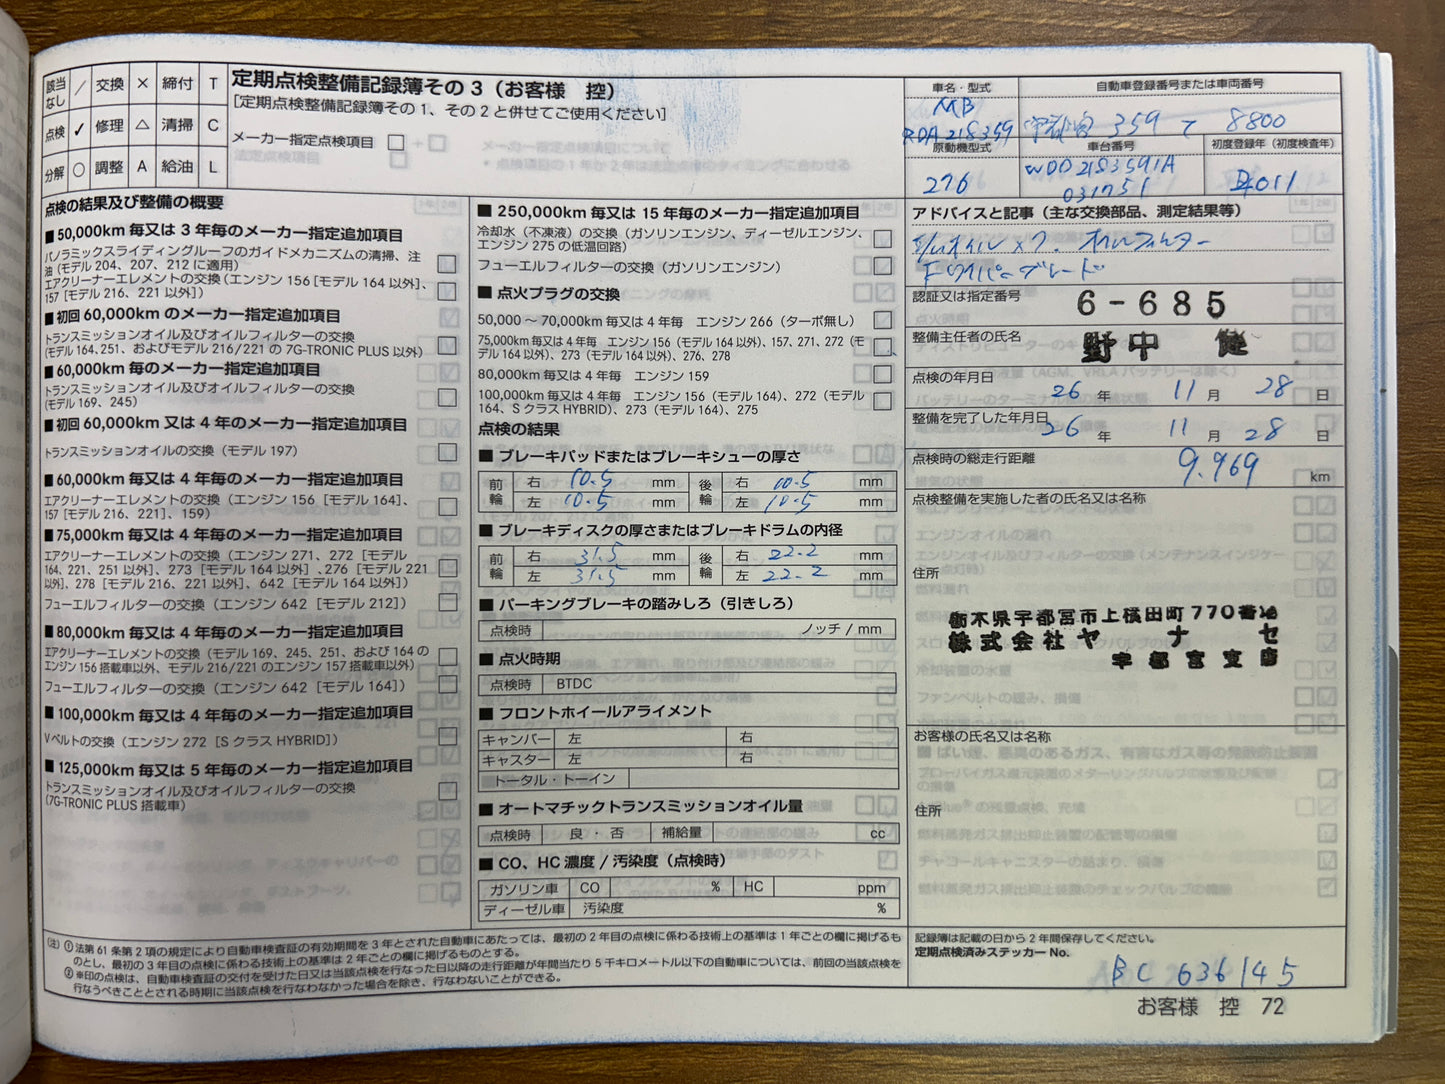 該当なし ／ 交換 × 締付 T
点検 ✓ 修理 △ 清掃 C
分解 ○ 調整 A 給油 L
定期点検整備記録簿その3（お客様 控）
［定期点検整備記録簿その1、その2と併せてご使用ください］
メーカー指定点検項目 □
車名・型式
MB
RDA218359
自動車登録番号または車両番号
宇都宮 359 て 8800
原動機型式
276
車台番号
WDD2183591A
031751
初度登録年（初度検査年）
点検の結果及び整備の概要
■50,000km 毎又は 3 年毎のメーカー指定追加項目
パノラミックスライディングルーフのガイドメカニズムの清掃、注
油（モデル 204、207、212 に適用）
エアクリーナーエレメントの交換（エンジン 156［モデル 164 以外］、
157［モデル 216、221 以外］）
■初回 60,000km のメーカー指定追加項目
トランスミッションオイル及びオイルフィルターの交換
（モデル 164、251、およびモデル 216/221 の 7G-TRONIC PLUS 以外）
■60,000km 毎のメーカー指定追加項目
トランスミッションオイル及びオイルフィルターの交換
（モデル 169、245）
■初回 60,000km 又は 4 年毎のメーカー指定追加項目
トランスミッションオイルの交換（モデル 197）
■60,000km 毎又は 4 年毎のメーカー指定追加項目
エアクリーナーエレメントの交換（エンジン 156［モデル 164］、
157［モデル 216、221］、159）
■75,000km 毎又は 4 年毎のメーカー指定追加項目
エアクリーナーエレメントの交換（エンジン 271、272［モデル
164、221、251 以外］、273［モデル 164 以外］、276［モデル 221
以外］、278［モデル 216、221 以外］、642［モデル 164 以外］）
フューエルフィルターの交換（エンジン 642［モデル 212］）
■80,000km 毎又は 4 年毎のメーカー指定追加項目
エアクリーナーエレメントの交換（モデル 169、245、251、および 164 の
エンジン 156 搭載車以外、モデル 216/221 のエンジン 157 搭載車以外）
フューエルフィルターの交換（エンジン 642［モデル 164］）
■100,000km 毎又は 4 年毎のメーカー指定追加項目
Vベルトの交換（エンジン 272［S クラス HYBRID］）
■125,000km 毎又は 5 年毎のメーカー指定追加項目
トランスミッションオイル及びオイルフィルターの交換
（7G-TRONIC PLUS 搭載車）
■250,000km 毎又は 15 年毎のメーカー指定追加項目
冷却水（不凍液）の交換（ガソリンエンジン、ディーゼルエンジン、
エンジン 275 の低温回路）
フューエルフィルターの交換（ガソリンエンジン）
■点火プラグの交換
50,000～70,000km 毎又は 4 年毎 エンジン 266（ターボ無し）
75,000km 毎又は 4 年毎 エンジン 156（モデル 164 以外）、157、271、272（モ
デル 164 以外）、273（モデル 164 以外）、276、278
80,000km 毎又は 4 年毎 エンジン 159
100,000km 毎又は 4 年毎 エンジン 156（モデル 164）、272（モデル
164、S クラス HYBRID）、273（モデル 164）、275
点検の結果
■ブレーキパッドまたはブレーキシューの厚さ
前輪 右 10.5 mm 後輪 右 10.5 mm
左 10.5 mm 左 10.5 mm
■ブレーキディスクの厚さまたはブレーキドラムの内径
前輪 右 31.5 mm 後輪 右 22.2 mm
左 31.5 mm 左 22.2 mm
■パーキングブレーキの踏みしろ（引きしろ）
点検時 ノッチ / mm
■点火時期
点検時 BTDC
■フロントホイールアライメント
キャンバー 左 右
キャスター 左 右
トータル・トーイン
■オートマチックトランスミッションオイル量
点検時 良・否 補給量 cc
■CO、HC 濃度 / 汚染度（点検時）
ガソリン車 CO % HC ppm
ディーゼル車 汚染度 %
アドバイスと記事（主な交換部品、測定結果等）
オイルフィルター
Fワイパーブレード
認証又は指定番号 6-685
整備主任者の氏名 野中 健
点検の年月日 26 年 11 月 28 日
整備を完了した年月日 26 年 11 月 28 日
点検時の総走行距離 9.969 km
点検整備を実施した者の氏名又は名称
住所
栃木県宇都宮市上横田町770番地
株式会社ヤナセ
宇都宮支店
お客様の氏名又は名称
住所
（注）① 法第 61 条第 2 項の規定により自動車検査証の有効期間を 3 年とされた自動車にあたっては、最初の 2 年目の点検に係わる技術上の基準は 1 年ごとの欄に掲げるも
のとし、最初の 3 年目の点検に係わる技術上の基準は 2 年ごとの欄に掲げるものとする。
② ※印の点検は、自動車検査証の交付を受けた日又は当該点検を行なった日以降の走行距離が年間当たり 5 千キロメートル以下の自動車については、前回の当該点検を
行なうべきこととされる時期に当該点検を行なわなかった場合を除き、行なわないことができる。
記録簿は記載の日から 2 年間保存してください。
定期点検済みステッカー No.
BC 636145
お客様 控 72